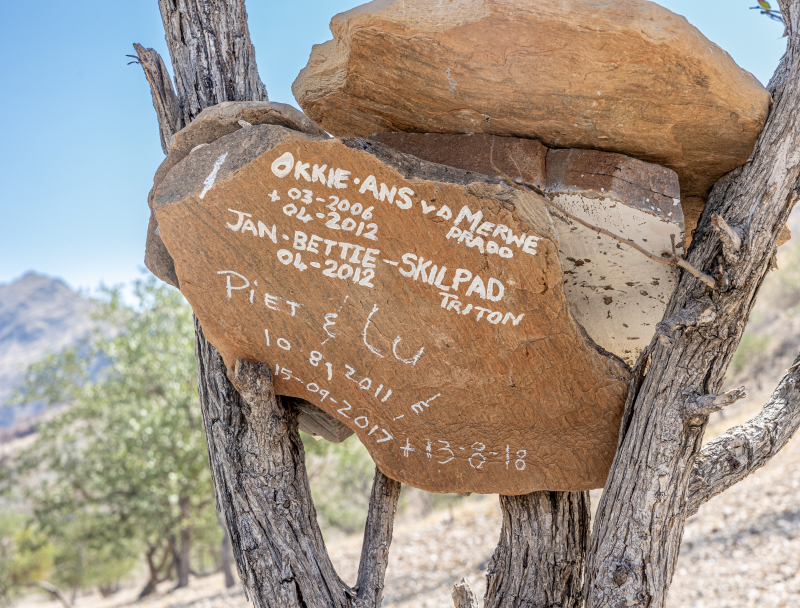 OKKIE·ANS v.D MERWE
+ 03-2006 PRADO
04-2012
JAN-BETTIE-SKILPAD
04-2012 TRITON
PIET & LU
10 8, 2011, &
15-09-2017 + 13-8-18